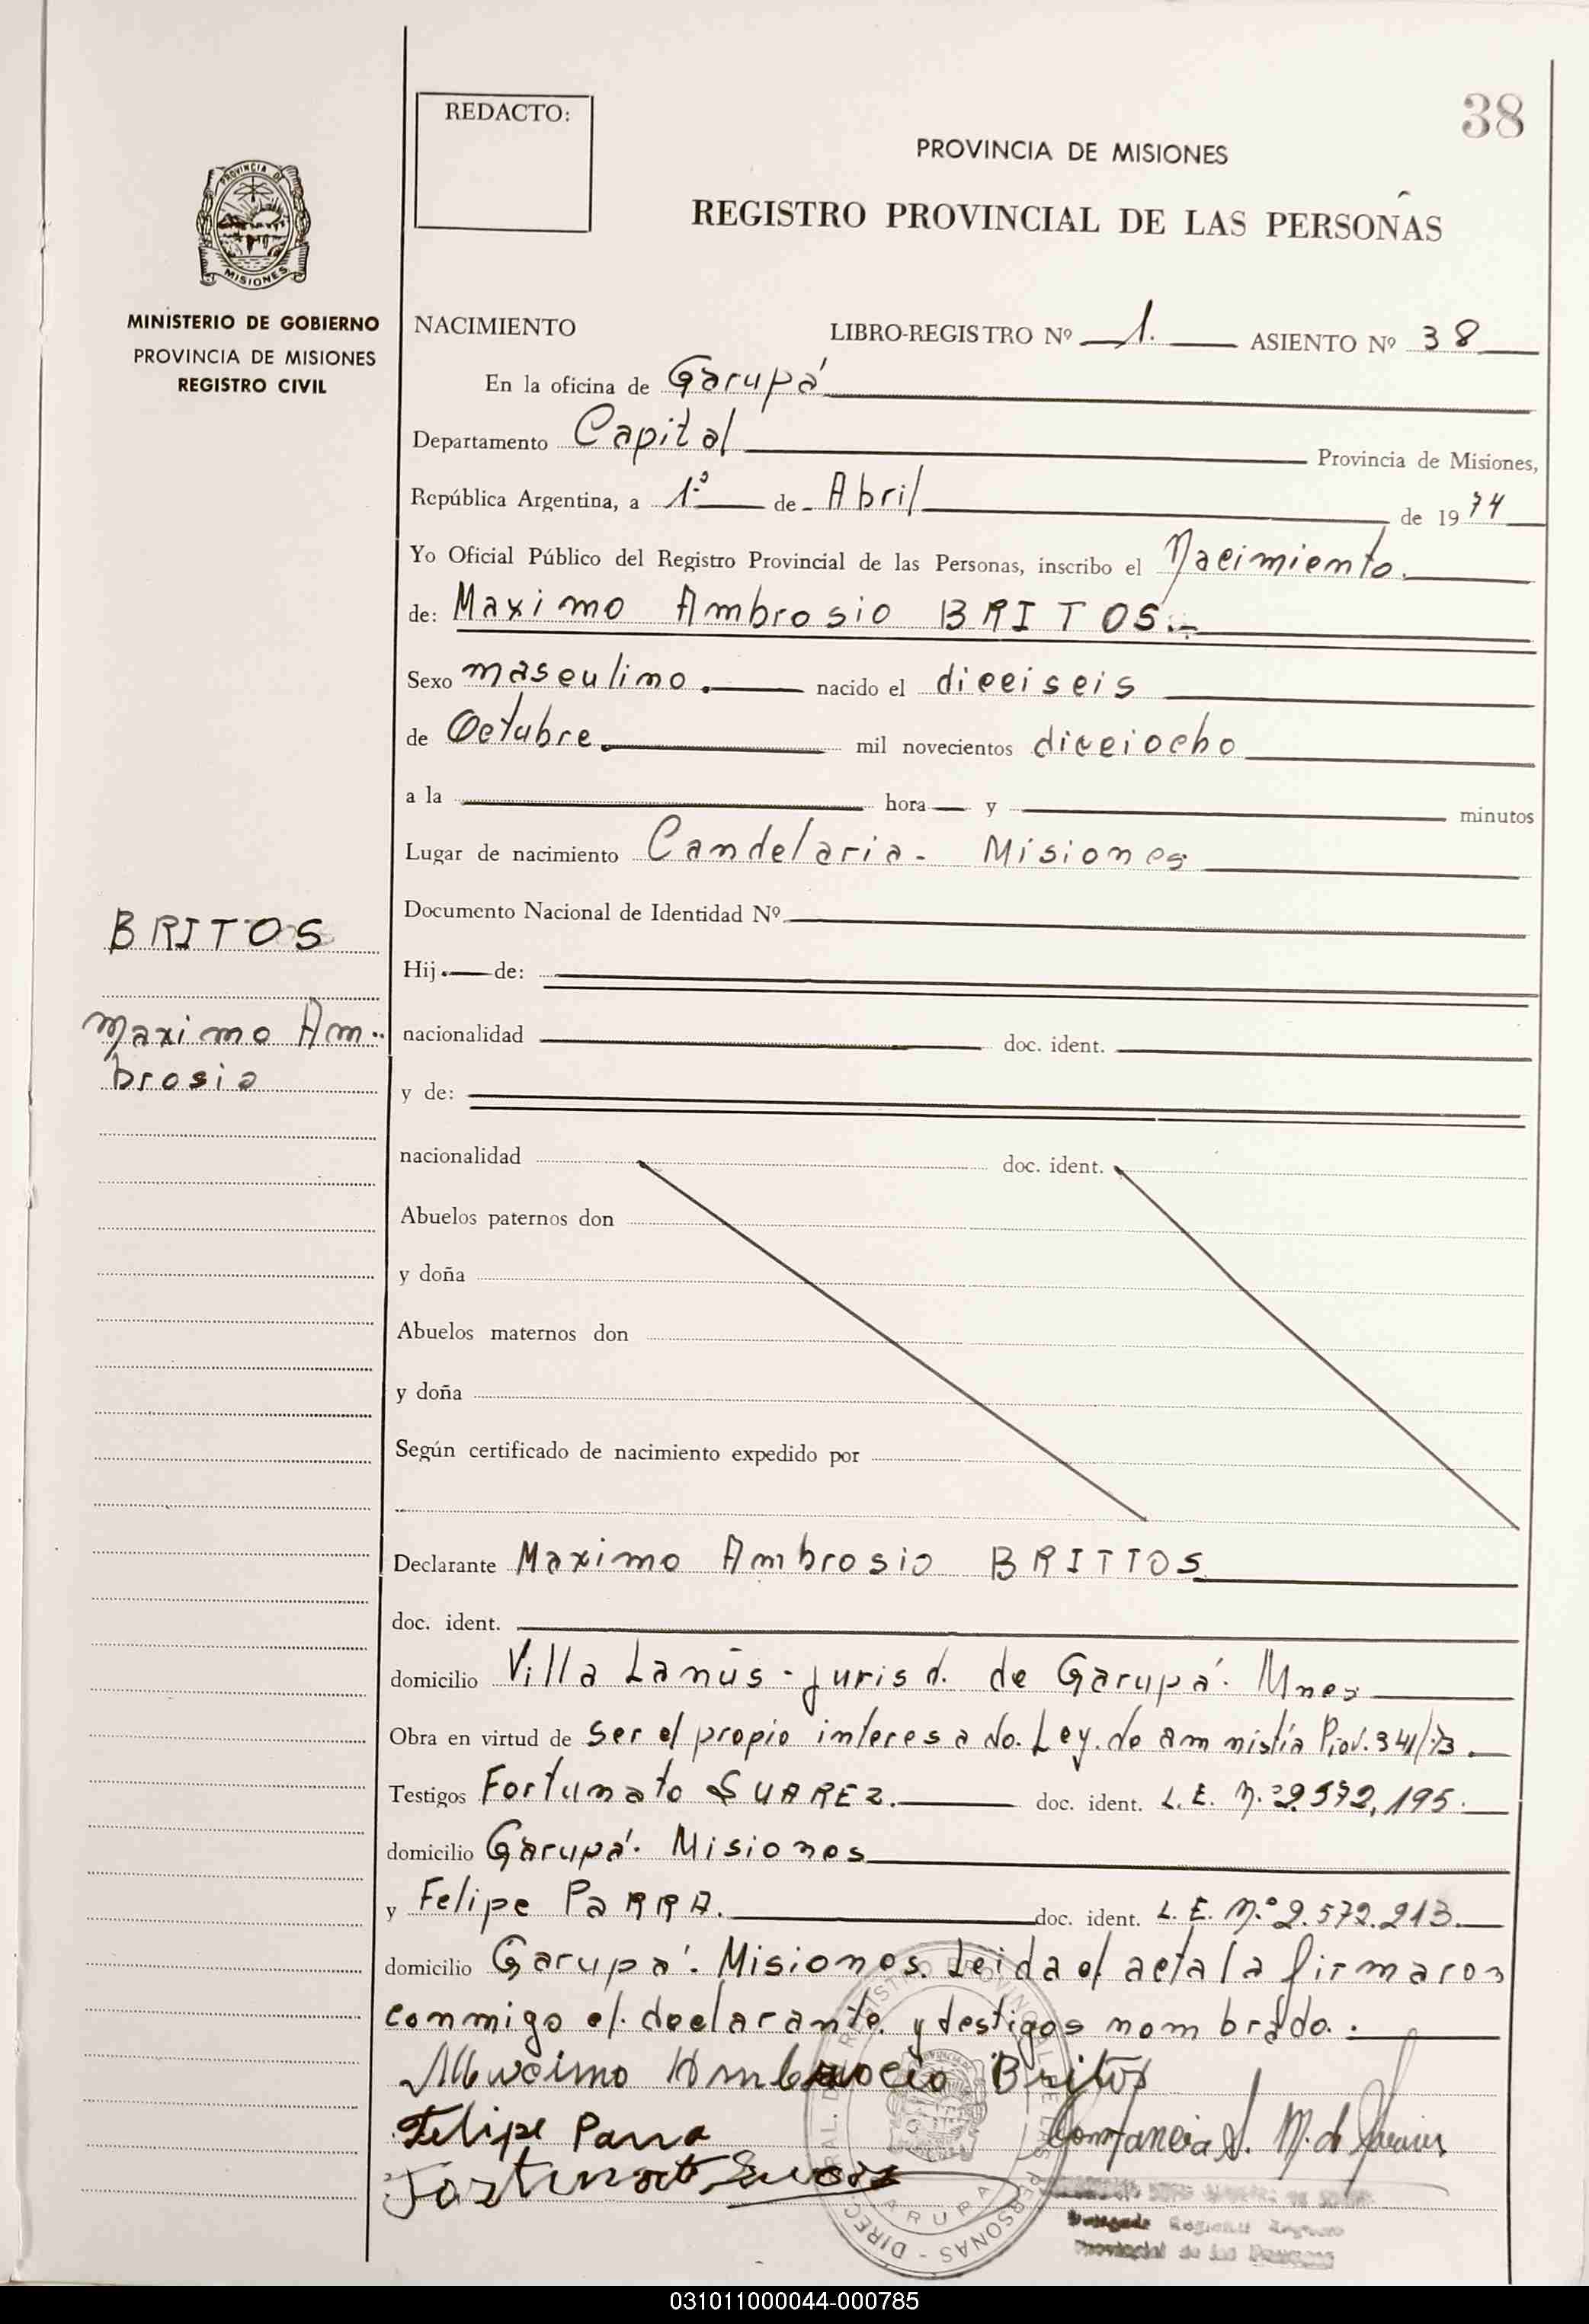 38
REDACTO:
PROVINCIA DE MISIONES
REGISTRO PROVINCIAL DE LAS PERSONAS
PROVINCIA DE
MISIONES
MINISTERIO DE GOBIERNO
PROVINCIA DE MISIONES
REGISTRO CIVIL
NACIMIENTO LIBRO-REGISTRO Nº 1. ASIENTO Nº 38
En la oficina de Garupá
Departamento Capital Provincia de Misiones,
República Argentina, a 1º de Abril de 1974
Yo Oficial Público del Registro Provincial de las Personas, inscribo el Nacimiento.
de: Maximo Ambrosio BRITOS.-
Sexo masculino. nacido el dieciseis
de Octubre. mil novecientos dieciocho
a la hora y minutos
Lugar de nacimiento Candelaria - Misiones
Documento Nacional de Identidad Nº
Hij de:
nacionalidad doc. ident.
y de:
nacionalidad doc. ident.
Abuelos paternos don
y doña
Abuelos maternos don
y doña
Según certificado de nacimiento expedido por
BRITOS
Maximo Am-
brosio
Declarante Maximo Ambrosio BRITTOS
doc. ident.
domicilio Villa Lanús - jurisd. de Garupá. Mnes
Obra en virtud de ser el propio interesado. Ley. de amnistía Prov. 341/73.
Testigos Fortunato SUAREZ. doc. ident. L. E. N. 2.572,195.
domicilio Garupá. Misiones
y Felipe PaRRA. doc. ident. L. E. N.º 2.572.213.
domicilio Garupá. Misiones. Leida el acta la firmaron
conmigo el declarante y testigos nombrado.
Maximo Ambrocio Britos
Felipe Parra
Fortunato Suarez
GARUPA
031011000044-000785